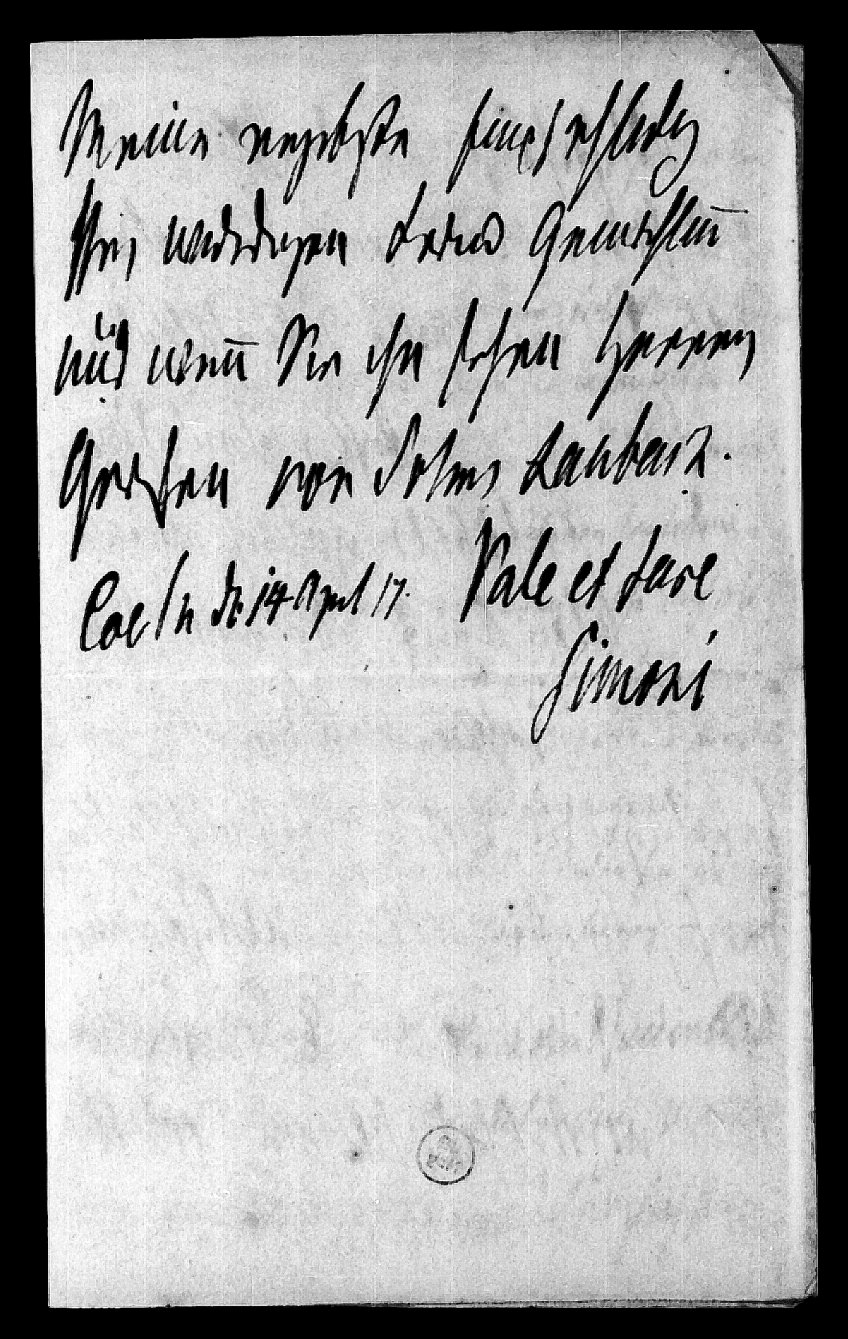 Meine ergebste Empfehlung
Ihrer würdigen Frau Gemahlin̄
und wen̄ Sie ihn sehen Herren
Grafen von Solms Laubach.
Coeln d 14 April 17. Vale et fave
Simoni